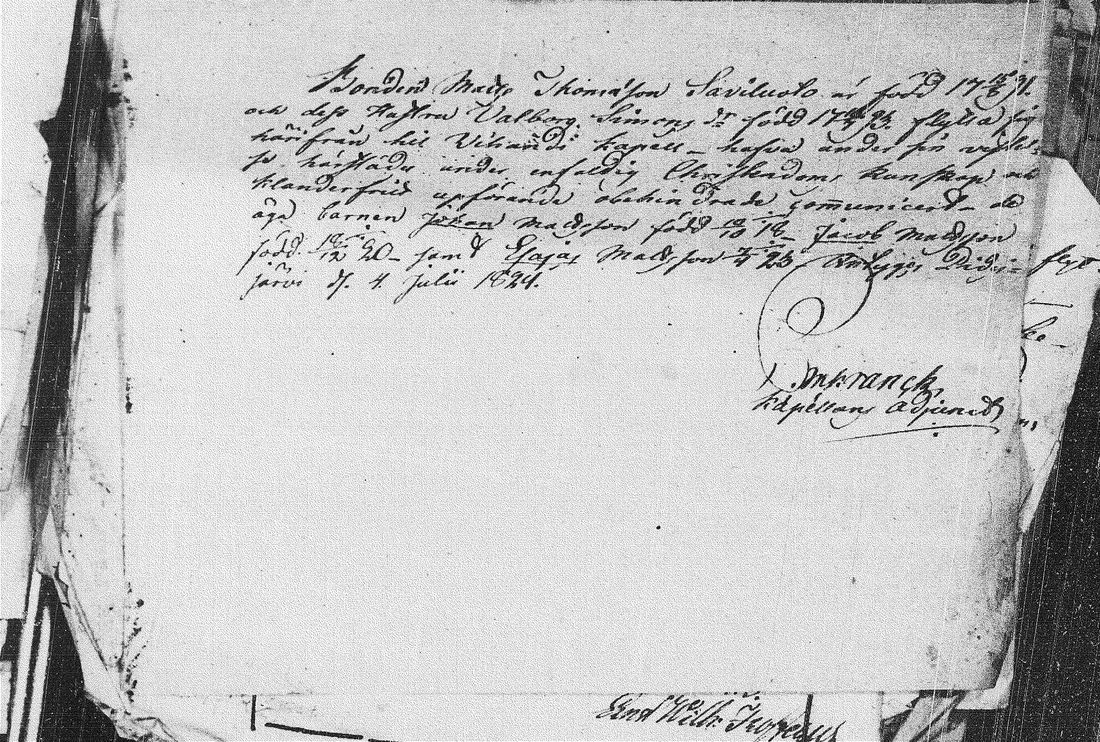 Bonden Matts Thomasson Saviluoto är född 17 91.
och dess Hustru Valborg Simons dr född 17 93. flytta sig
härifrån til Vihandi Kapell – hafva under sin vistel-
se härstädes under enfaldig Christendoms kunskap och
klanderfritt upförande obehindrade communicerat – de
äga barnen Johan Madsson född 18 – Jacob Madsson
född 12 20 – samt Esajas Madsson 23 Intygas
järvi d. 4. Julii 1824.
Kapellans Adjunct